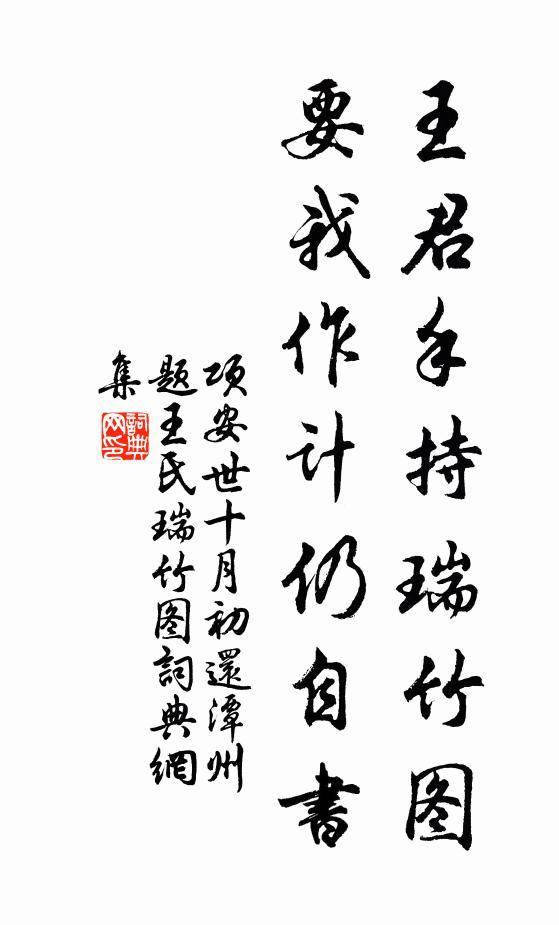 王君手持瑞竹图
要我作计仍自書
项安世十月初還潭州
题王氏瑞竹图詞典網
集
詞典
网印